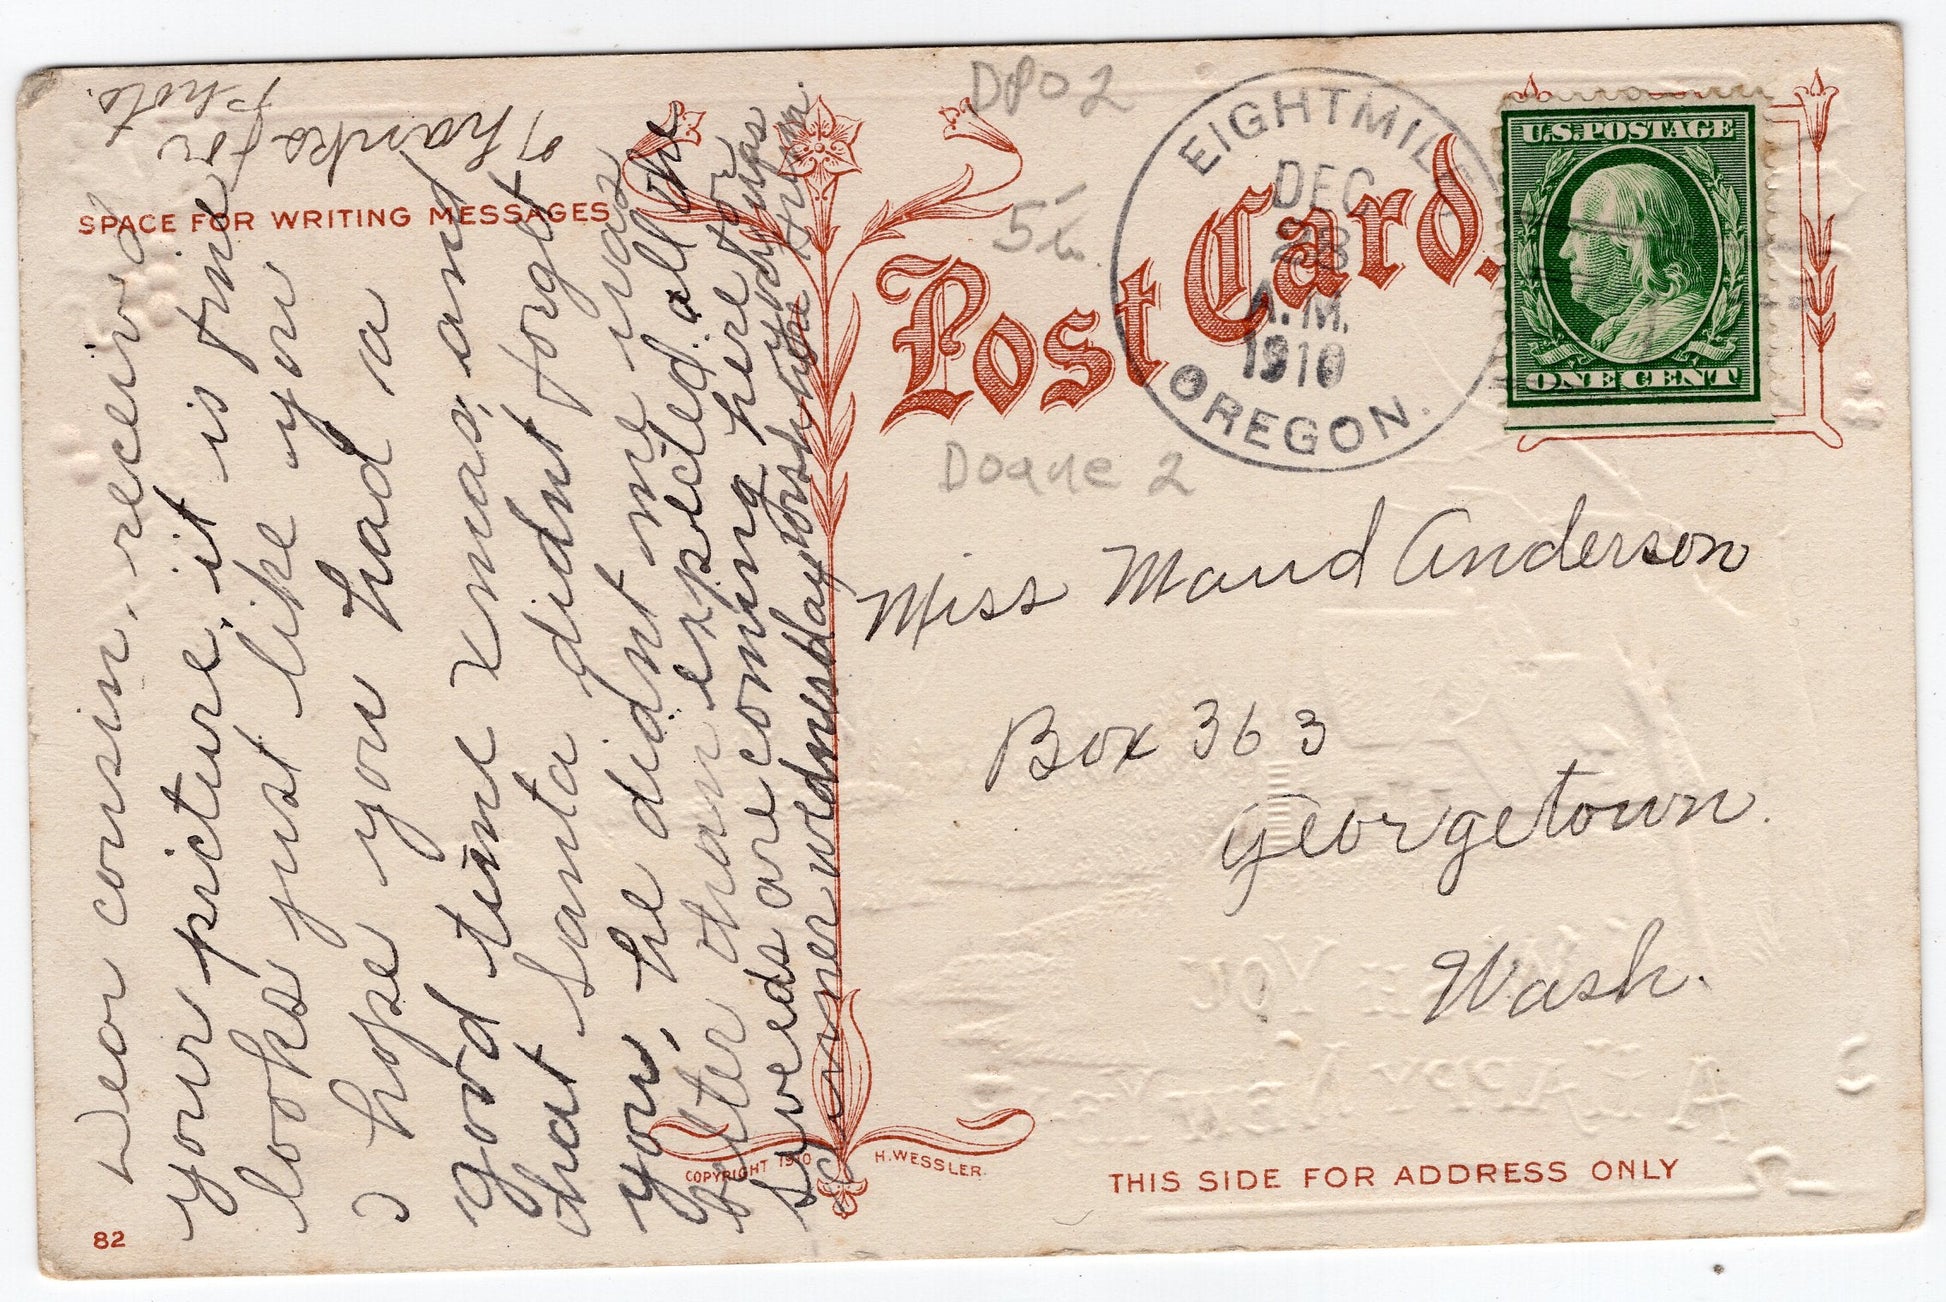 Thanks
for
Photo.
SPACE FOR WRITING MESSAGES
Dear cousin, received
your picture, it is fine
looks just like you
I hope you had a
good time xmas, and
that Santa didnt forget
you, he didnt me it was
better than expected. all the
Sweeds are coming here for
dinner wednesday
COPYRIGHT 1910 H. WESSLER.
82
DPO 2
5
Doane 2
Post Card.
EIGHTMILE
DEC
28
A.M.
1910
OREGON.
U.S. POSTAGE
ONE CENT
Miss Maud Anderson
Box 363
Georgetown.
Wash.
YOU
A HAPPY NEW YEAR
THIS SIDE FOR ADDRESS ONLY